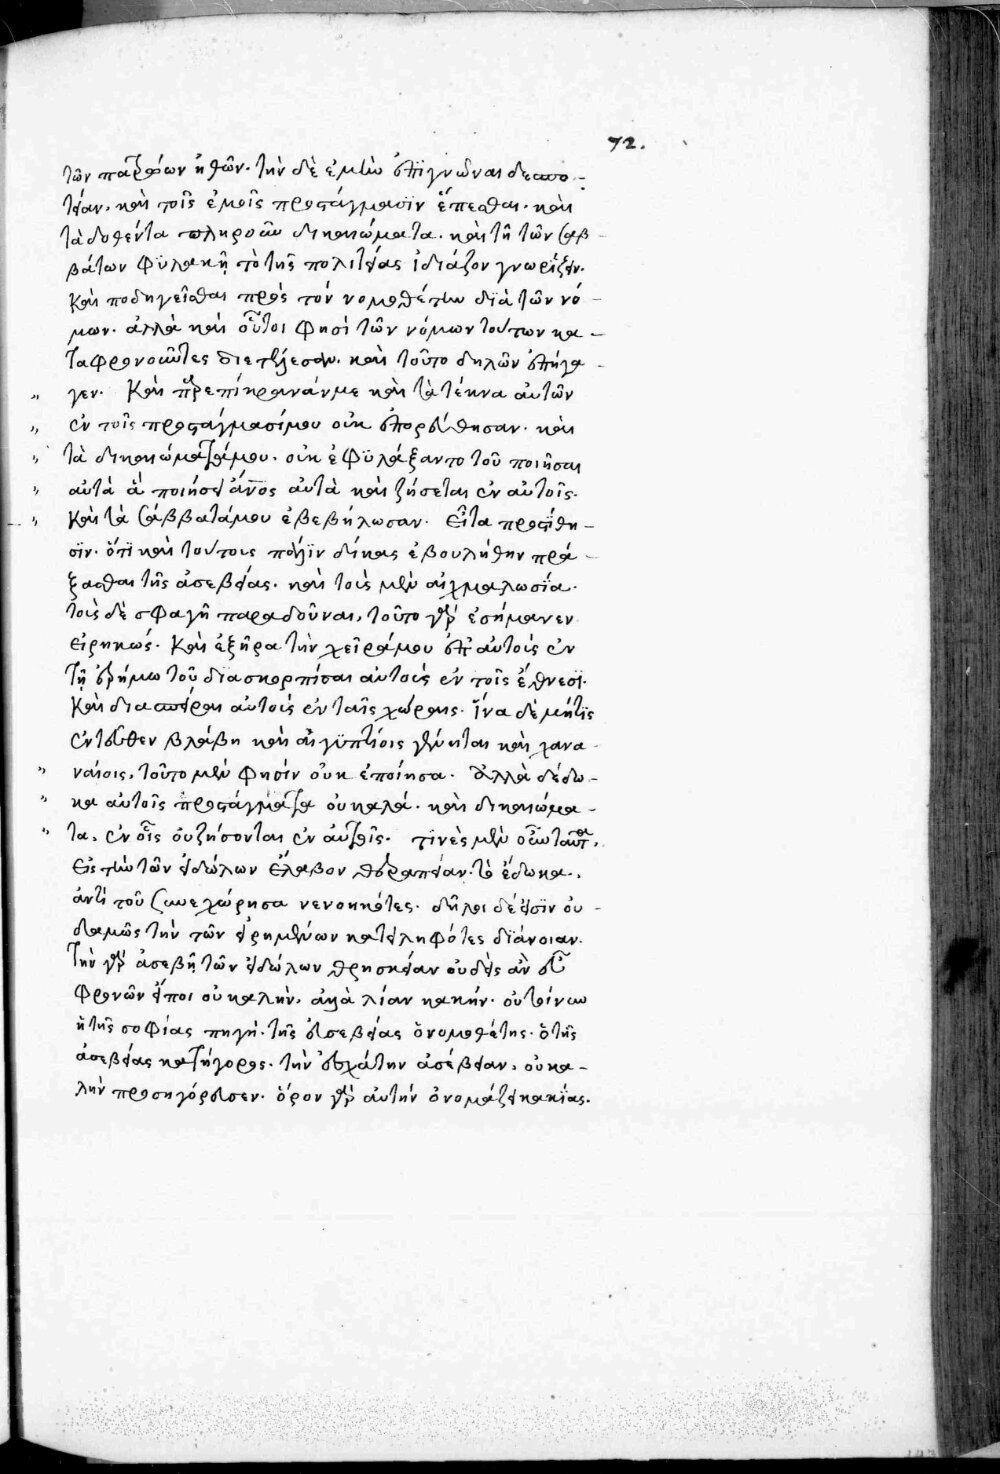 72.
τῶν πατρώων ἠθῶν. τὴν δὲ ἐμὴν ἐπιγνῶναι δεσπο-
τείαν. καὶ τοῖς ἐμοῖς προστάγμασιν ἕπεσθαι. καὶ
τὰ δοθέντα πληροῦν δικαιώματα. καὶ τῇ τῶν σαβ-
βάτων φυλακῇ τὸ τῆς πολιτείας ἰδιάζον γνωρίζειν.
καὶ ποδηγεῖσθαι πρὸς τὸν νομοθέτην διὰ τῶν νό-
μων. ἀλλὰ καὶ οὗτοι φησὶ τῶν νόμων τούτων κα-
ταφρονοῦντες διετέλεσαν. καὶ τοῦτο δηλῶν ἐπήγα-
γεν. Καὶ παρεπίκρανάν με καὶ τὰ τέκνα αὐτῶν
ἐν τοῖς προστάγμασί μου οὐκ ἐπορεύθησαν. καὶ
τὰ δικαιώματά μου. οὐκ ἐφυλάξαντο τοῦ ποιῆσαι
αὐτὰ ἃ ποιήσει ἄνος αὐτὰ καὶ ζήσεται ἐν αὐτοῖς.
Καὶ τὰ σάββατά μου ἐβεβήλωσαν. Εἶτα προστίθη-
σιν. ὅτι καὶ τούτους πάλιν δίκας ἐβουλήθην πρά-
ξασθαι τῆς ἀσεβείας. καὶ τοὺς μὲν αἰχμαλωσία.
τοὺς δὲ σφαγῆ παραδοῦναι, τοῦτο γὰρ ἐσήμανεν
εἰρηκώς. Καὶ ἐξῆρα τὴν χεῖρά μου ἐπ αὐτοὺς ἐν
τῇ ἐρήμω τοῦ διασκορπίσαι αὐτοὺς ἐν τοῖς ἔθνεσι.
Καὶ διασπεῖραι αὐτοὺς ἐν ταῖς χώραις. ἵνα δὲ μήτις
ἐντεῦθεν βλάβη καὶ αἰγυπτίοις γένηται καὶ χανα-
ναίοις, τοῦτο μὲν φησὶν οὐκ ἐποίησα. Ἀλλὰ δέδω-
κα αὐτοῖς προστάγματα οὐ καλά. καὶ δικαιώμα-
τα, ἐν οἷς οὐ ζήσονται ἐν αὐτοῖς. τινὲς μὲν οὖν ταῦτα,
εἰς τὴν τῶν εἰδώλων ἔλαβον θεραπείαν. τὸ ἔδωκα,
ἀντὶ τοῦ συνεχώρησα νενοηκότες. δῆλοι δέ εἰσιν οὐ-
δαμῶς τὴν τῶν εἰρημένων κατειληφότες διάνοιαν.
τὴν γὰρ ἀσεβῆ τῶν εἰδώλων θρησκείαν οὐδεὶς ἂν εὖ
φρονῶν εἴποι οὐ καλὴν. ἀλλὰ λίαν κακήν. οὐ τοίνυν
ἡ τῆς σοφίας πηγή. τῆς εὐσεβείας ὁ νομοθέτης. ὁ τῆς
ἀσεβείας κατήγορος. τὴν ἐσχάτην ἀσέβειαν, οὐ κα-
λὴν προσηγόρευσεν. ὅρον γὰρ αὐτὴν ὀνομάζει κακίας.